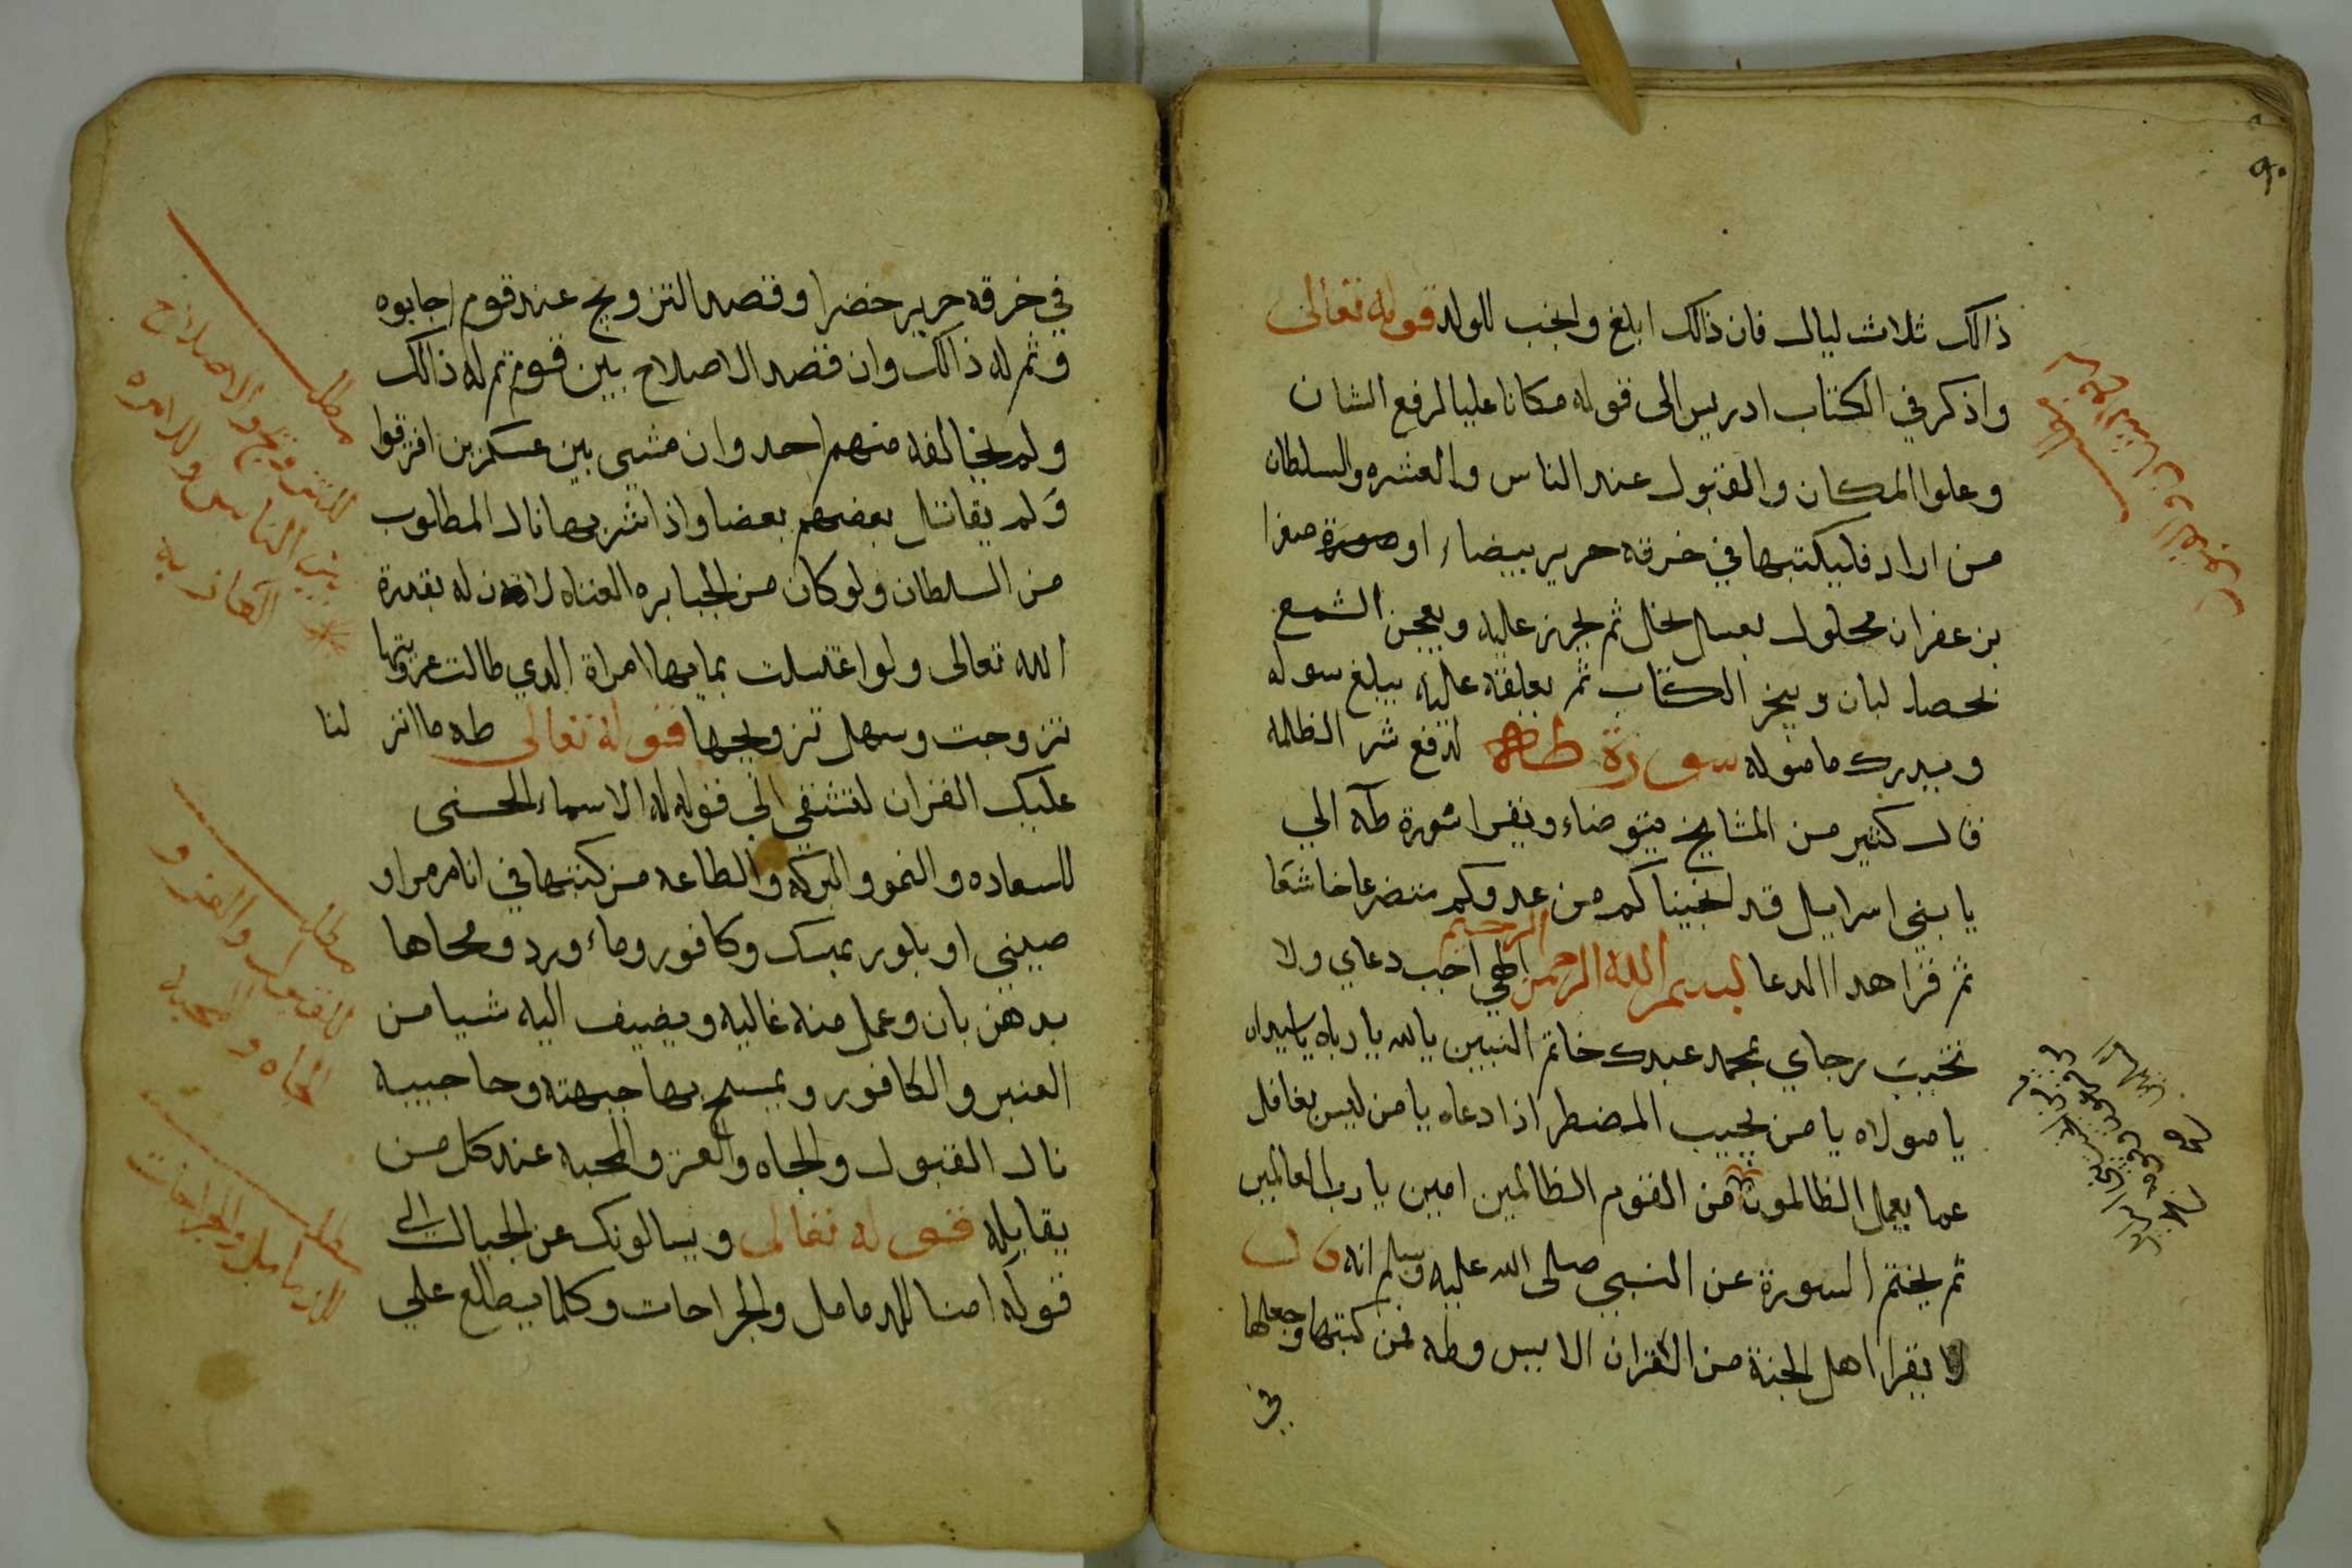 ٩٠
ذالك ثلاث ليال فان ذالك ابلغ وانجب للولد قوله تعالى
واذكر في الكتاب ادريس الى قوله مكانا عليا لرفع الشان
وعلوا المكان والقبول عند الناس والعشره والسلطان
من اراد فليكتبها في خرقه حرير بيضاء او صفرا
بزعفران محلول بعسل نحل ثم يحرز عليه ويعجن الشمع
بحصا لبان ويبخر الكتاب ثم يعلقه عليه يبلغ سوله
ويدرك مامنوله سورة طه لدفع شر الظلمه
قال كثير من المشايخ يتوضاء ويقرا سورة طه الي
يا بني اسرايل قد انجيناكم من عدوكم متضرعا خاشعا
ثم قرا هدا الدعا بسم الله الرحمن الرحيم الهي اجب دعاي ولا
تخيب رجاي بمحمد عبدك خاتم النبيين يا الله يا رباه يا سيداه
يا مولاه يا من يجيب المضطر اذا دعاه يا من ليس بغافل
عما يعمل الظالمون من القوم الظالمين امين يا رب العالمين
ثم يختم السورة عن النبي صلى الله عليه وسلم انه قال
لا يقرا اهل الجنة من القران الا يس وطه فمن كتبها وجعلها
في
في خرقه حرير خضرا وقصد التزويج عند قوم اجابوه
وتم له ذالك وان قصد الاصلاح بين قوم تم له ذالك
ولم يخالفه منهم احد وان مشى بين عسكرين افترقوا
ولم يقاتل بعضهم بعضا واذا شربها نال المطلوب
من السلطان ولو كان من الجبابره العتاه له بقدرة
الله تعالى ولو اغتسلت بمايها امراة الدي طالت عزوبتها
تزوجت وسهل تزويجها قوله تعالى طه ما انزلنا
عليك القران لتشقي الي قوله له الاسماء الحسنى
للسعاده والنمو والبركه والطاعه من كتبها في انا مرمر او
صيني او بلور بمسك وكافور وماء ورد ومحاها
بدهن بان وعمل منه غاليه ويضيف اليه شيا من
العنبر والكافور ويمسح بها جبهته وحاجبيه
نال القبول والجاه والعز والمحبه عند كل من
يقابله قوله تعالى ويسالونك عن الجبال الي
قوله امتا للدمامل والجراحات وكلما يطلع علي
مطلب
للتزويج والاصلاح
بين الناس وللمراه
العازبه
مطلب
للقبول والعز و
الجاه والمحبه
مطلب
للدمامل والجراحات